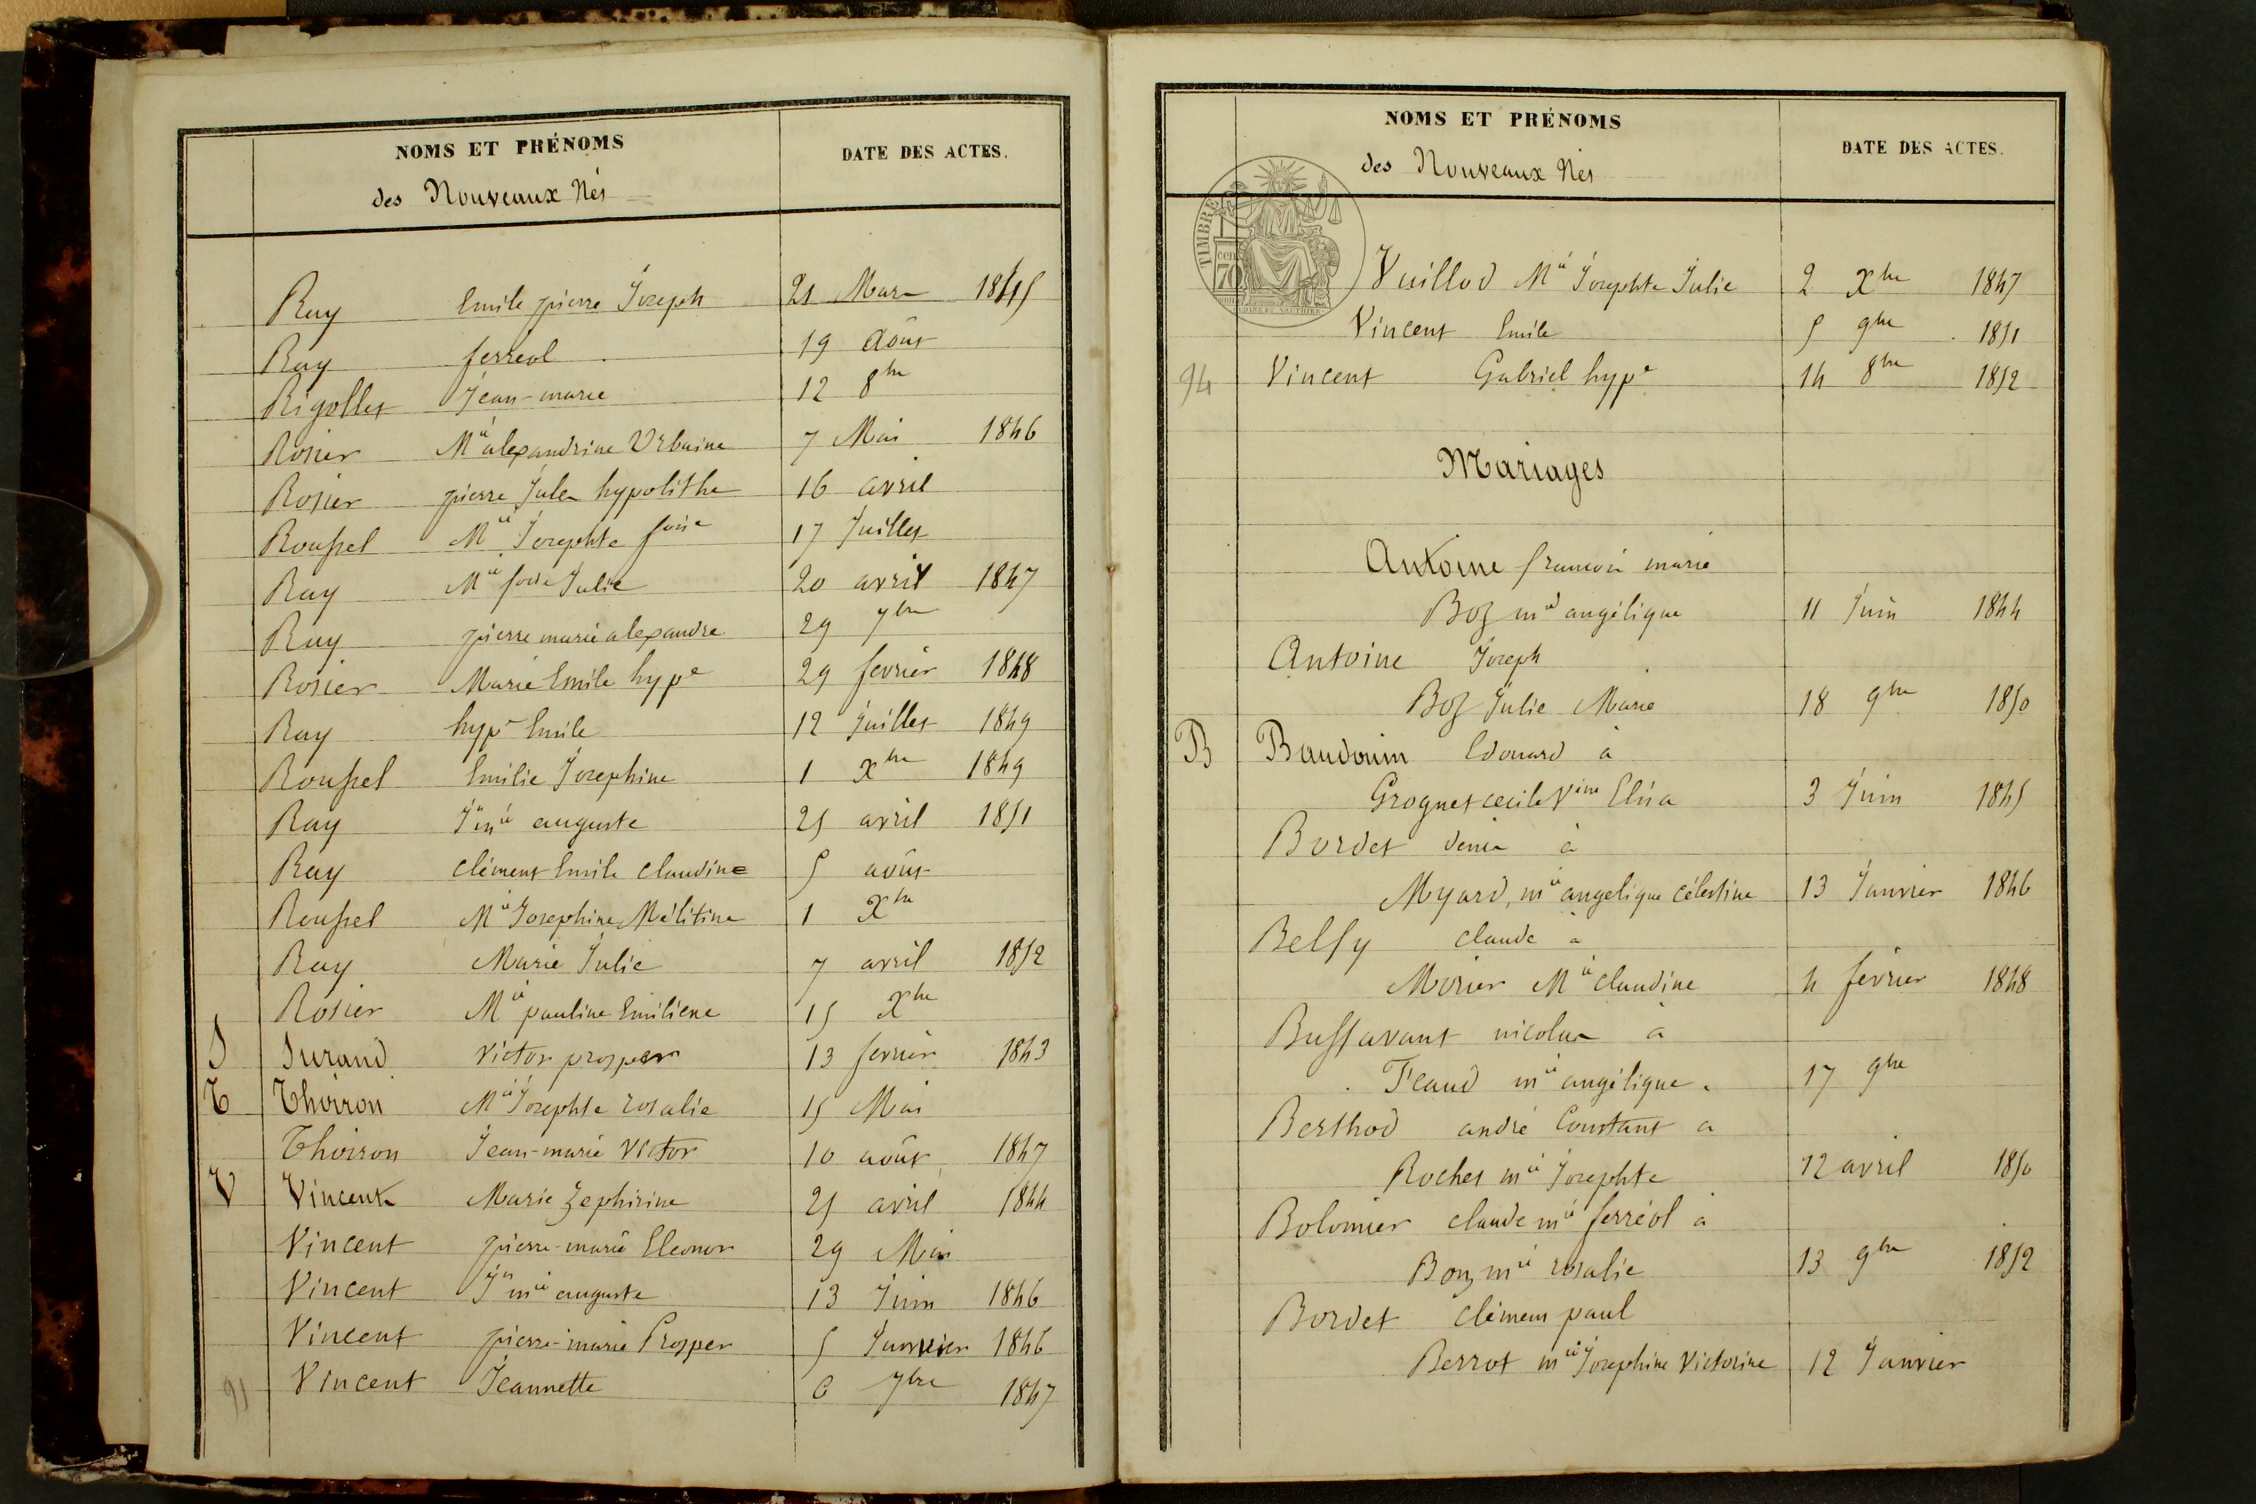 NOMS ET PRÉNOMS
des Nouveaux Nés
DATE DES ACTES.
Ray Emile pierre Joseph 21 Mars 1845
Ray ferréol 19 Août
Rigollet Jean-marie 12 8bre
Rosier Mie alexandrine Urbaine 7 Mai 1846
Rosier pierre Jules hypolithe 16 avril
Roussel Mie Josephte foise 17 Juillet
Ray Mie foise Julie 20 avril 1847
Ray pierre marie alexandre 29 7bre
Rosier Marie Emile hypte 29 fevrier 1848
Ray hypte Emile 12 Juillet 1849
Roussel Emilie Josephine 1 Xbre 1849
Ray Jn mie auguste 25 avril 1851
Ray clément Emile claudine 5 août
Roussel Mie Josephine Mélitine 1 Xbre
Ray Marie Julie 7 avril 1852
Rosier Mie pauline Emiliene 15 Xbre
S Surand Victor prosper 13 fevrier 1843
T Thoiron Mie Josephte rosalie 15 Mai
Thoiron Jean-marie Victor 10 août 1847
V Vincent Marie Zephirine 25 avril 1844
Vincent pierre-marie Eleonor 29 Mai
Vincent Jn mie auguste 13 Juin 1846
Vincent pierre-marie Prosper 5 Janvier 1846
91 Vincent Jeannette 6 7bre 1847
NOMS ET PRÉNOMS
des Nouveaux Nés
DATE DES ACTES.
TIMBRE
70
Vuillod Mie Josephte Julie 2 Xbre 1847
Vincent Emile 5 9bre 1851
94 Vincent Gabriel hypte 14 8bre 1852
Mariages
Antoine francois marie
Boz mie angélique 11 Juin 1844
Antoine Joseph
Boz Julie Marie 18 9bre 1850
B Baudouin Edouard à
Grognet cecile Vine Elisa 3 Juin 1845
Bordet denis à
Myard, mie angelique célestine 13 Janvier 1846
Belsy claude à
Morier Mie claudine 4 février 1848
Bussavant nicolas à
Feaud mie angélique 17 9bre
Berthod andré Constant a
Rochet mie Josephte 12 avril 1850
Bolomier claude mie ferréol à
Bonz mie rosalie 13 9bre 1852
Bordet clément paul
Berrot mie Josephine Victorine 12 Janvier